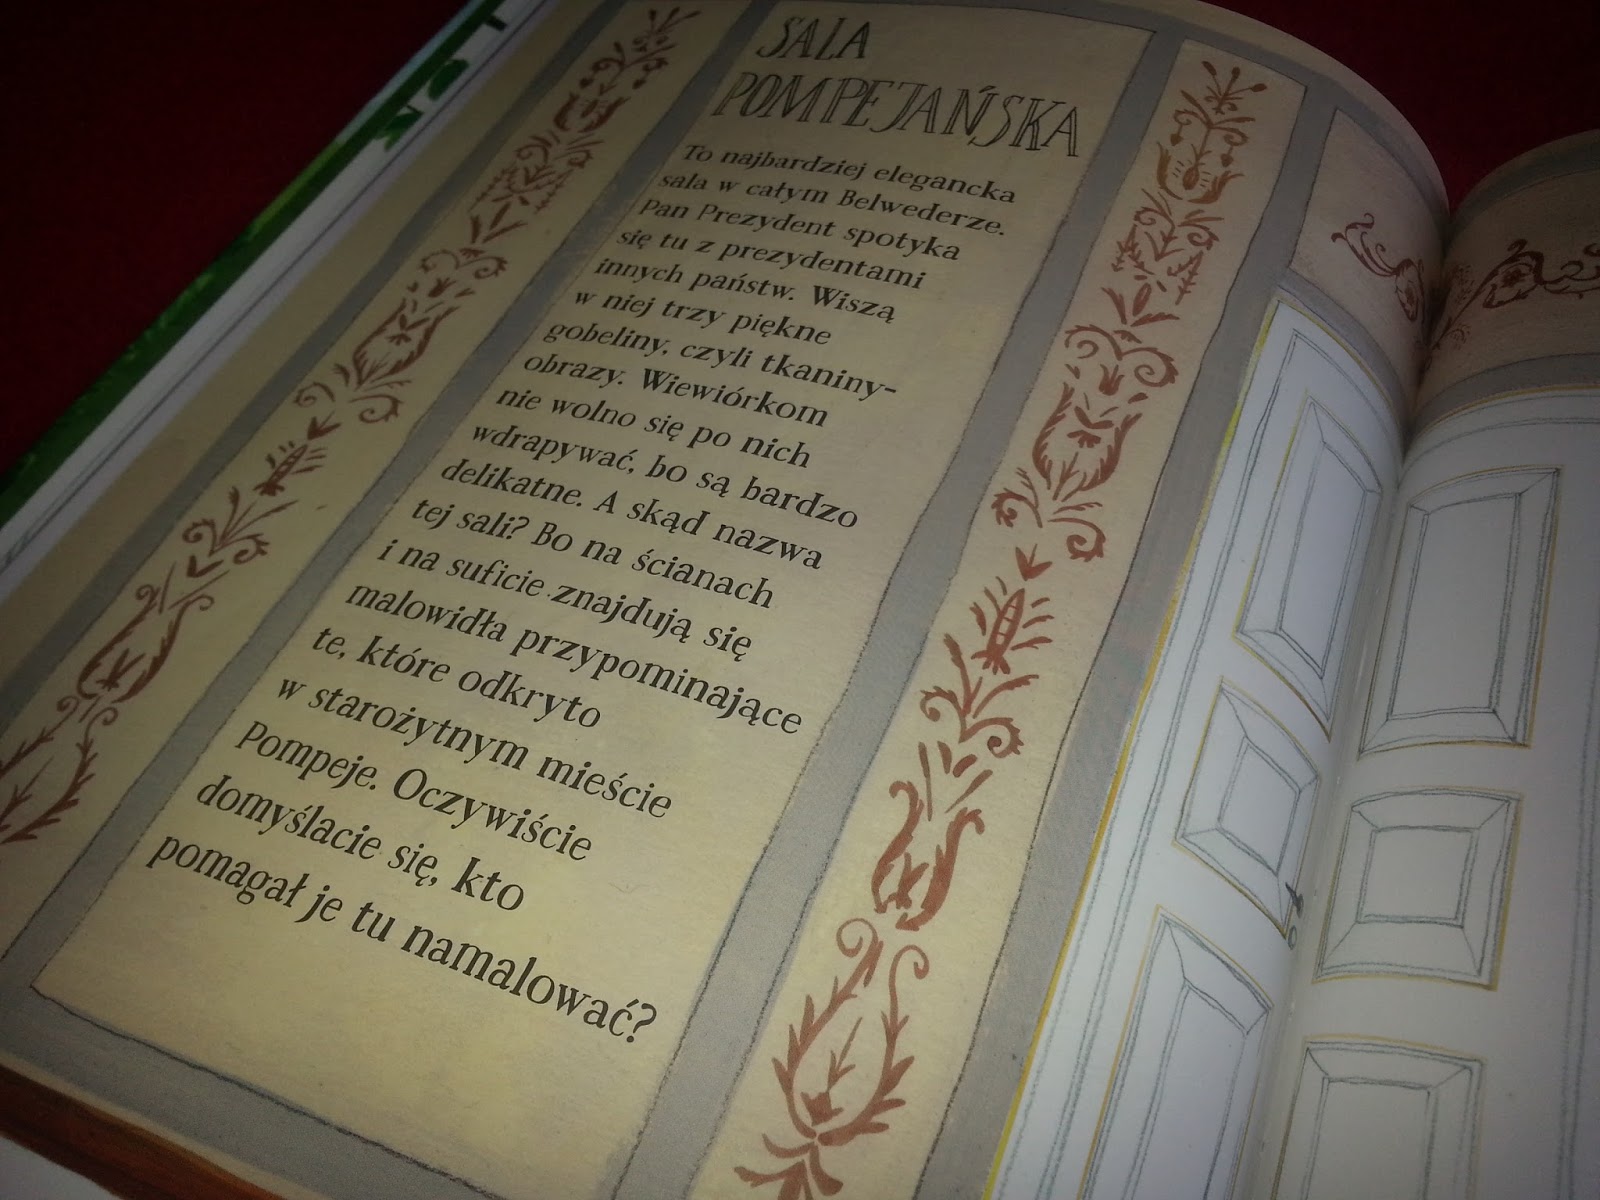 SALA
POMPEJAŃSKA
To najbardziej elegancka
sala w całym Belwederze.
Pan Prezydent spotyka
się tu z prezydentami
innych państw. Wiszą
w niej trzy piękne
gobeliny, czyli tkaniny-
obrazy. Wiewiórkom
nie wolno się po nich
wdrapywać, bo są bardzo
delikatne. A skąd nazwa
tej sali? Bo na ścianach
i na suficie znajdują się
malowidła przypominające
te, które odkryto
w starożytnym mieście
Pompeje. Oczywiście
domyślacie się, kto
pomagał je tu namalować?